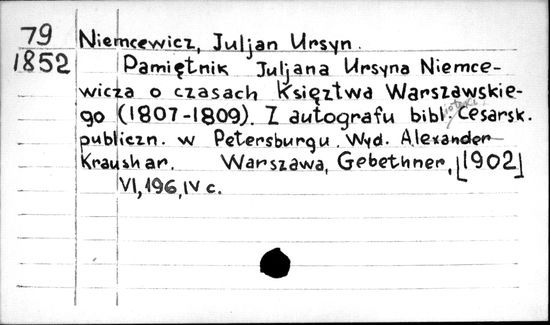 79
1852
Niemcewicz, Juljan Ursyn.
Pamiętnik Juljana Ursyna Niemce-
wicza o czasach Księztwa Warszawskie-
go (1807-1809). Z autografu bibl. Cesarsk.
publiczn. w Petersburgu. Wyd. Alexander
Kraushar. Warszawa, Gebethner, [1902]
VI, 196, IV c.